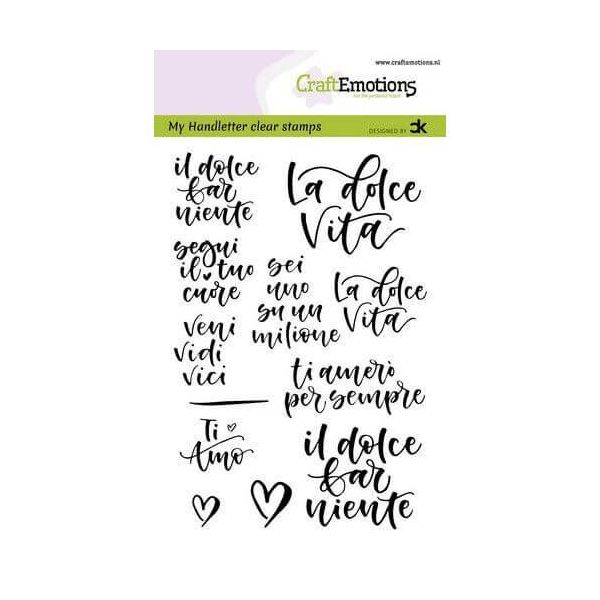 www.craftemotions.nl
CraftEmotions
My Handletter clear stamps
DESIGNED BY CK
il dolce
far
niente
La dolce
Vita
segui
il tuo
cuore
sei
uno
su un
milione
La dolce
Vita
veni
vidi
vici
ti amerò
per sempre
Ti
Amo
il dolce
far
niente